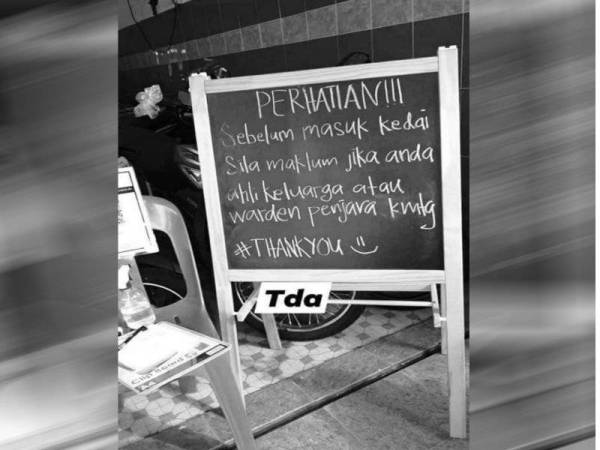 PERHATIAN!!!
Sebelum masuk kedai
Sila maklum jika anda
ahli keluarga atau
warden penjara kmtg
#THANKYOU
Tda